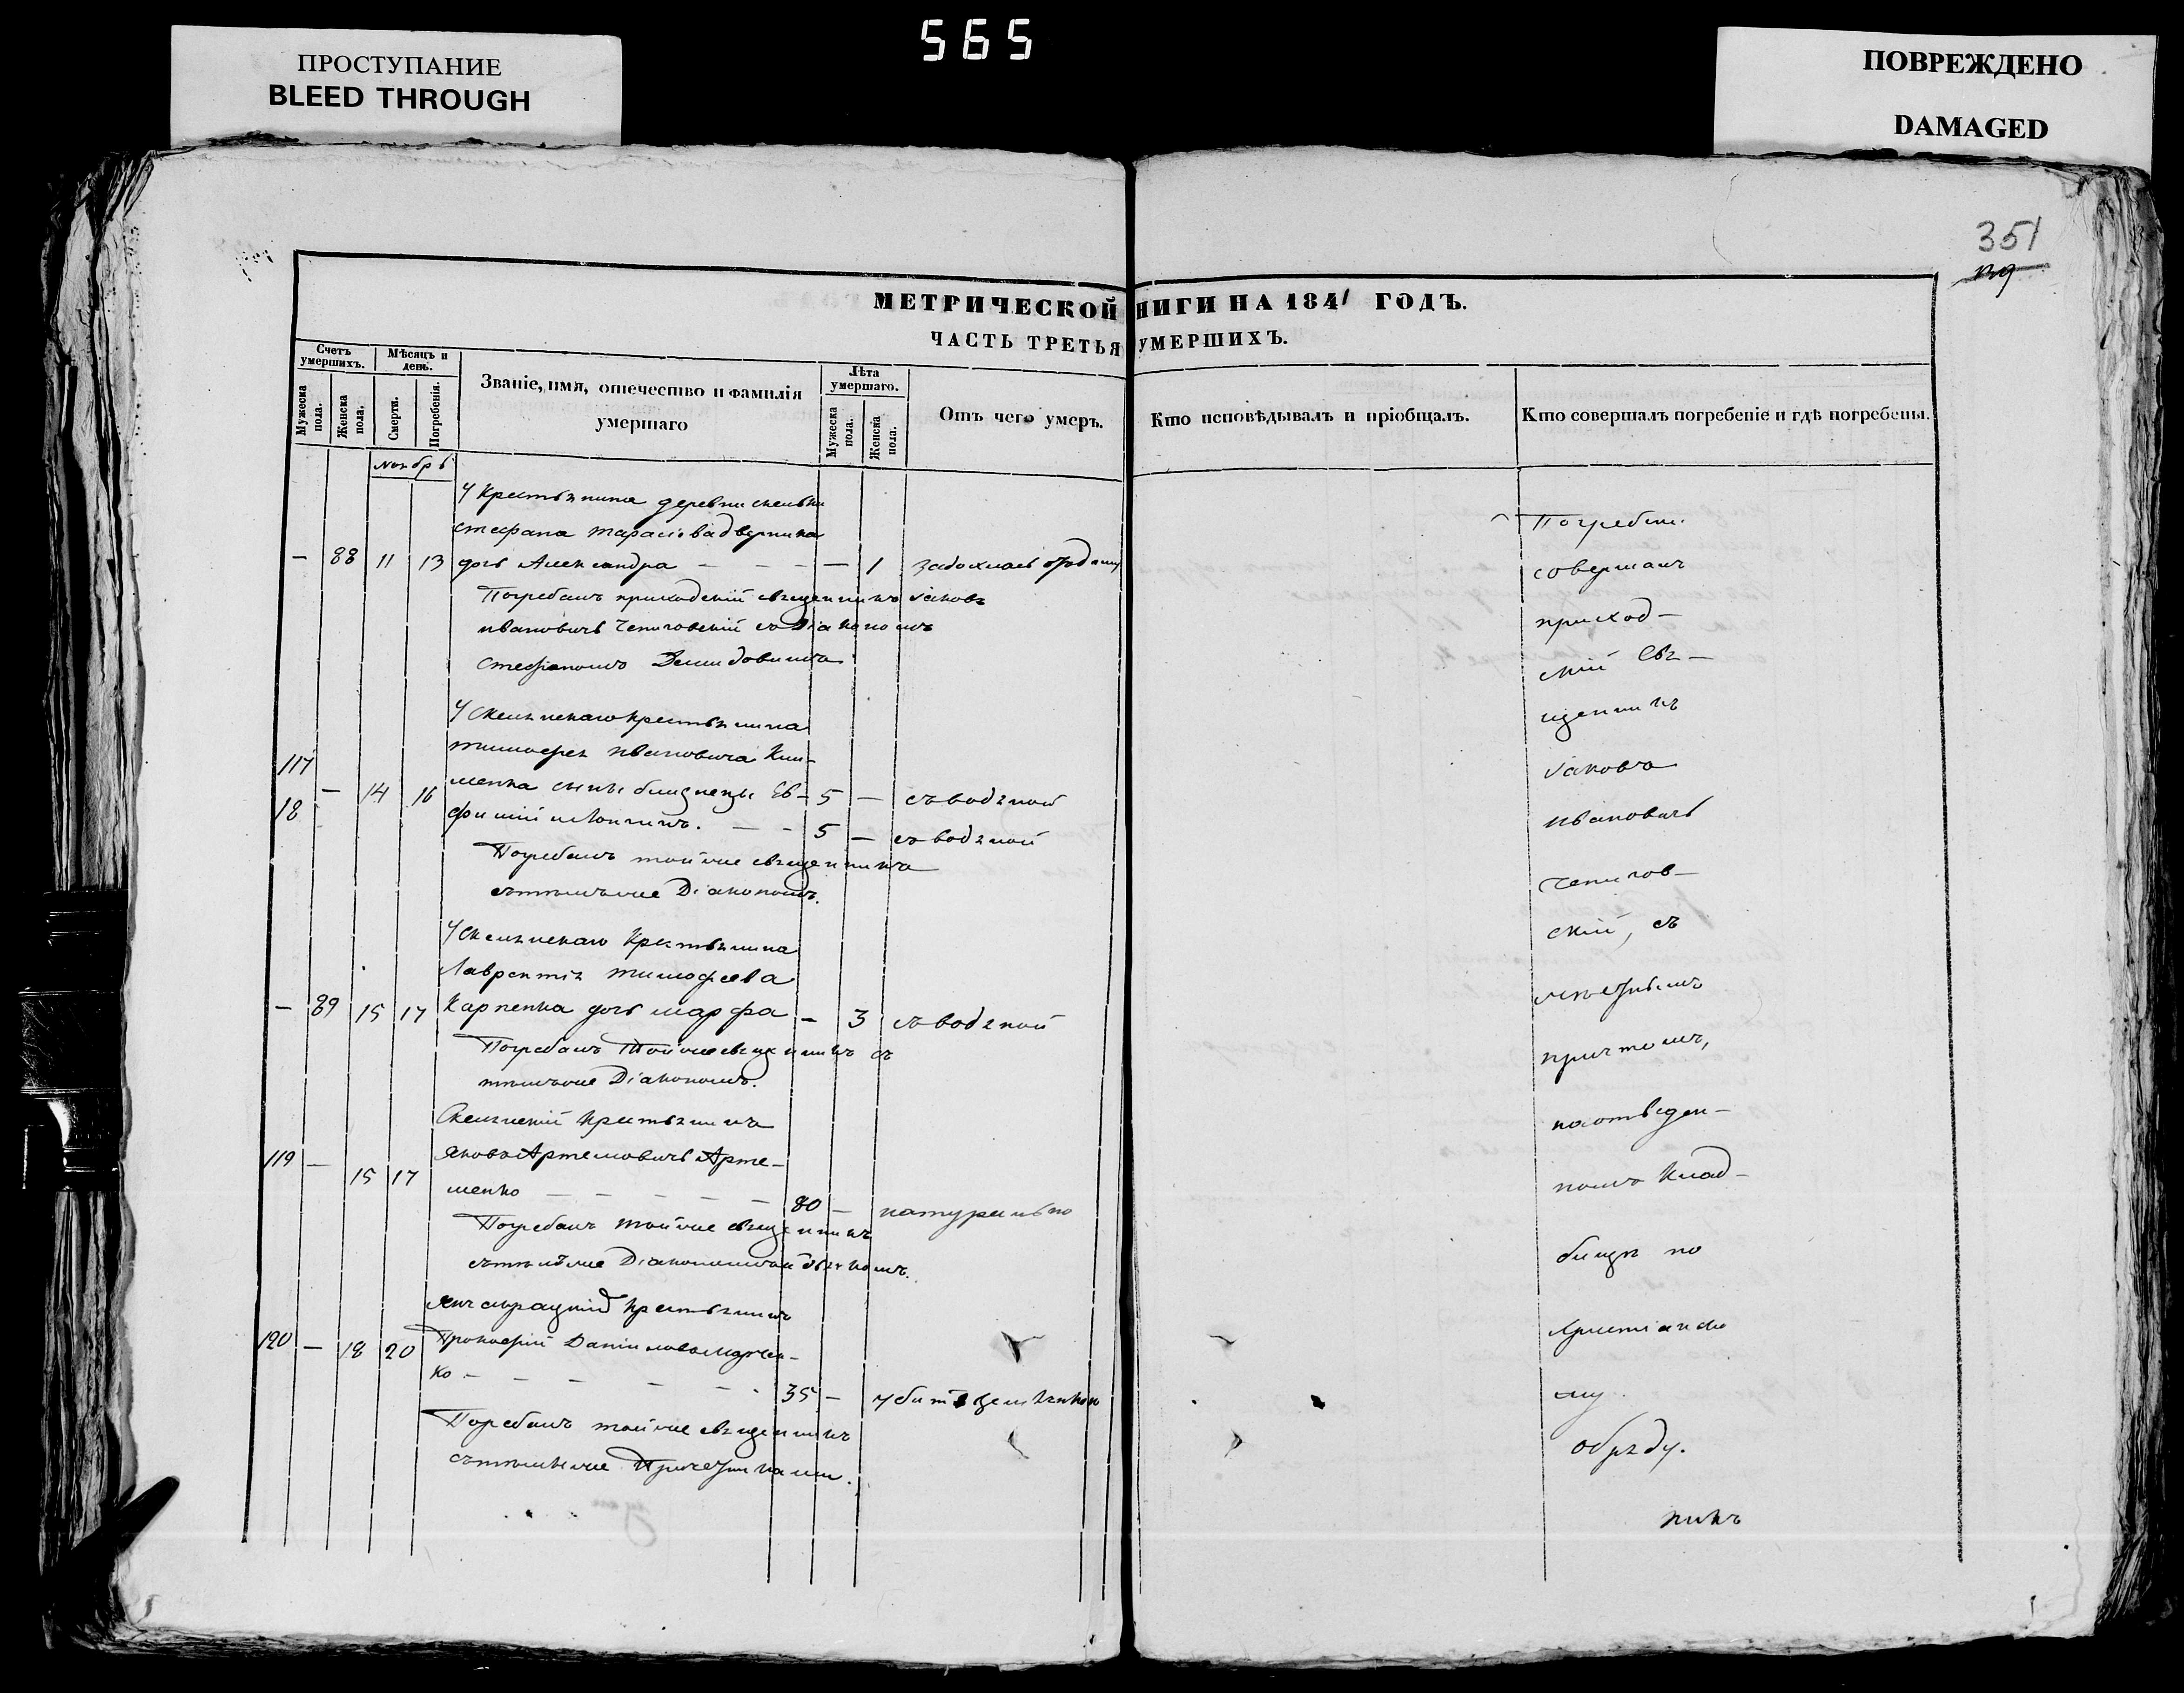 565
ПРОСТУПАНИЕ
BLEED THROUGH
ПОВРЕЖДЕНО
DAMAGED
351
МЕТРИЧЕСКОЙ НИГИ НА 1841 ГОДЪ.
ЧАСТЬ ТРЕТЬЯ УМЕРШИХЪ.
Счетъ умершихъ.
Мужеска пола.
Женска пола.
Мѣсяцъ и день.
Смерти.
Погребенія.
Званіе, имя, отечество и фамилія умершаго
Лѣта умершаго.
Мужеска пола.
Женска пола.
Отъ чего умеръ.
Кто исповѣдывалъ и пріобщалъ.
Кто совершалъ погребеніе и гдѣ погребены.
Ноябрь
У Крестьянина деревни
Стефана Тарасіева
— 88 11 13 дочь Александра — — — — 1
Погребалъ приходскій священникъ Іаковъ
Ивановичъ Чепиговскій съ Діакономъ
Стефаномъ Демидовимъ
У Скельскаго крестьянина
Тимофея Ивановича Кли-
117 — 14 16 менка сыны близнецы Ев- 5 — съ водяной
18 фимій и Логинъ. — — 5 — съ водяной
Погребалъ тойже священникъ
съ тѣмъже Діакономъ.
У Скельскаго Крестьянина
Лаврентія Тимофеева
— 89 15 17 Карпенка дочь Марфа — 3 съ водяной
Погребалъ Тойже священникъ съ
тѣмъже Діакономъ.
Скельскій Крестьянинъ
119 — 15 17 Яковъ Артемовичъ Арте-
менко — — — — — 80 — натурально
Погребалъ тойже священникъ
съ тѣмъже Діакономъ и дьячкомъ.
Крестьянинъ
120 — 18 20 Прокофій Даніиловъ Марчен-
ко — — — — — 35 — убитъ
Погребалъ тойже священникъ
съ тѣмиже Причетниками.
Погребеніе
совершалъ
приход-
скій Свя-
щенникъ
Іаковъ
Ивановичъ
Чепигов-
скій, съ
причтомъ,
на отведен-
номъ Клад-
бищѣ по
Христіанско
му
обряду.